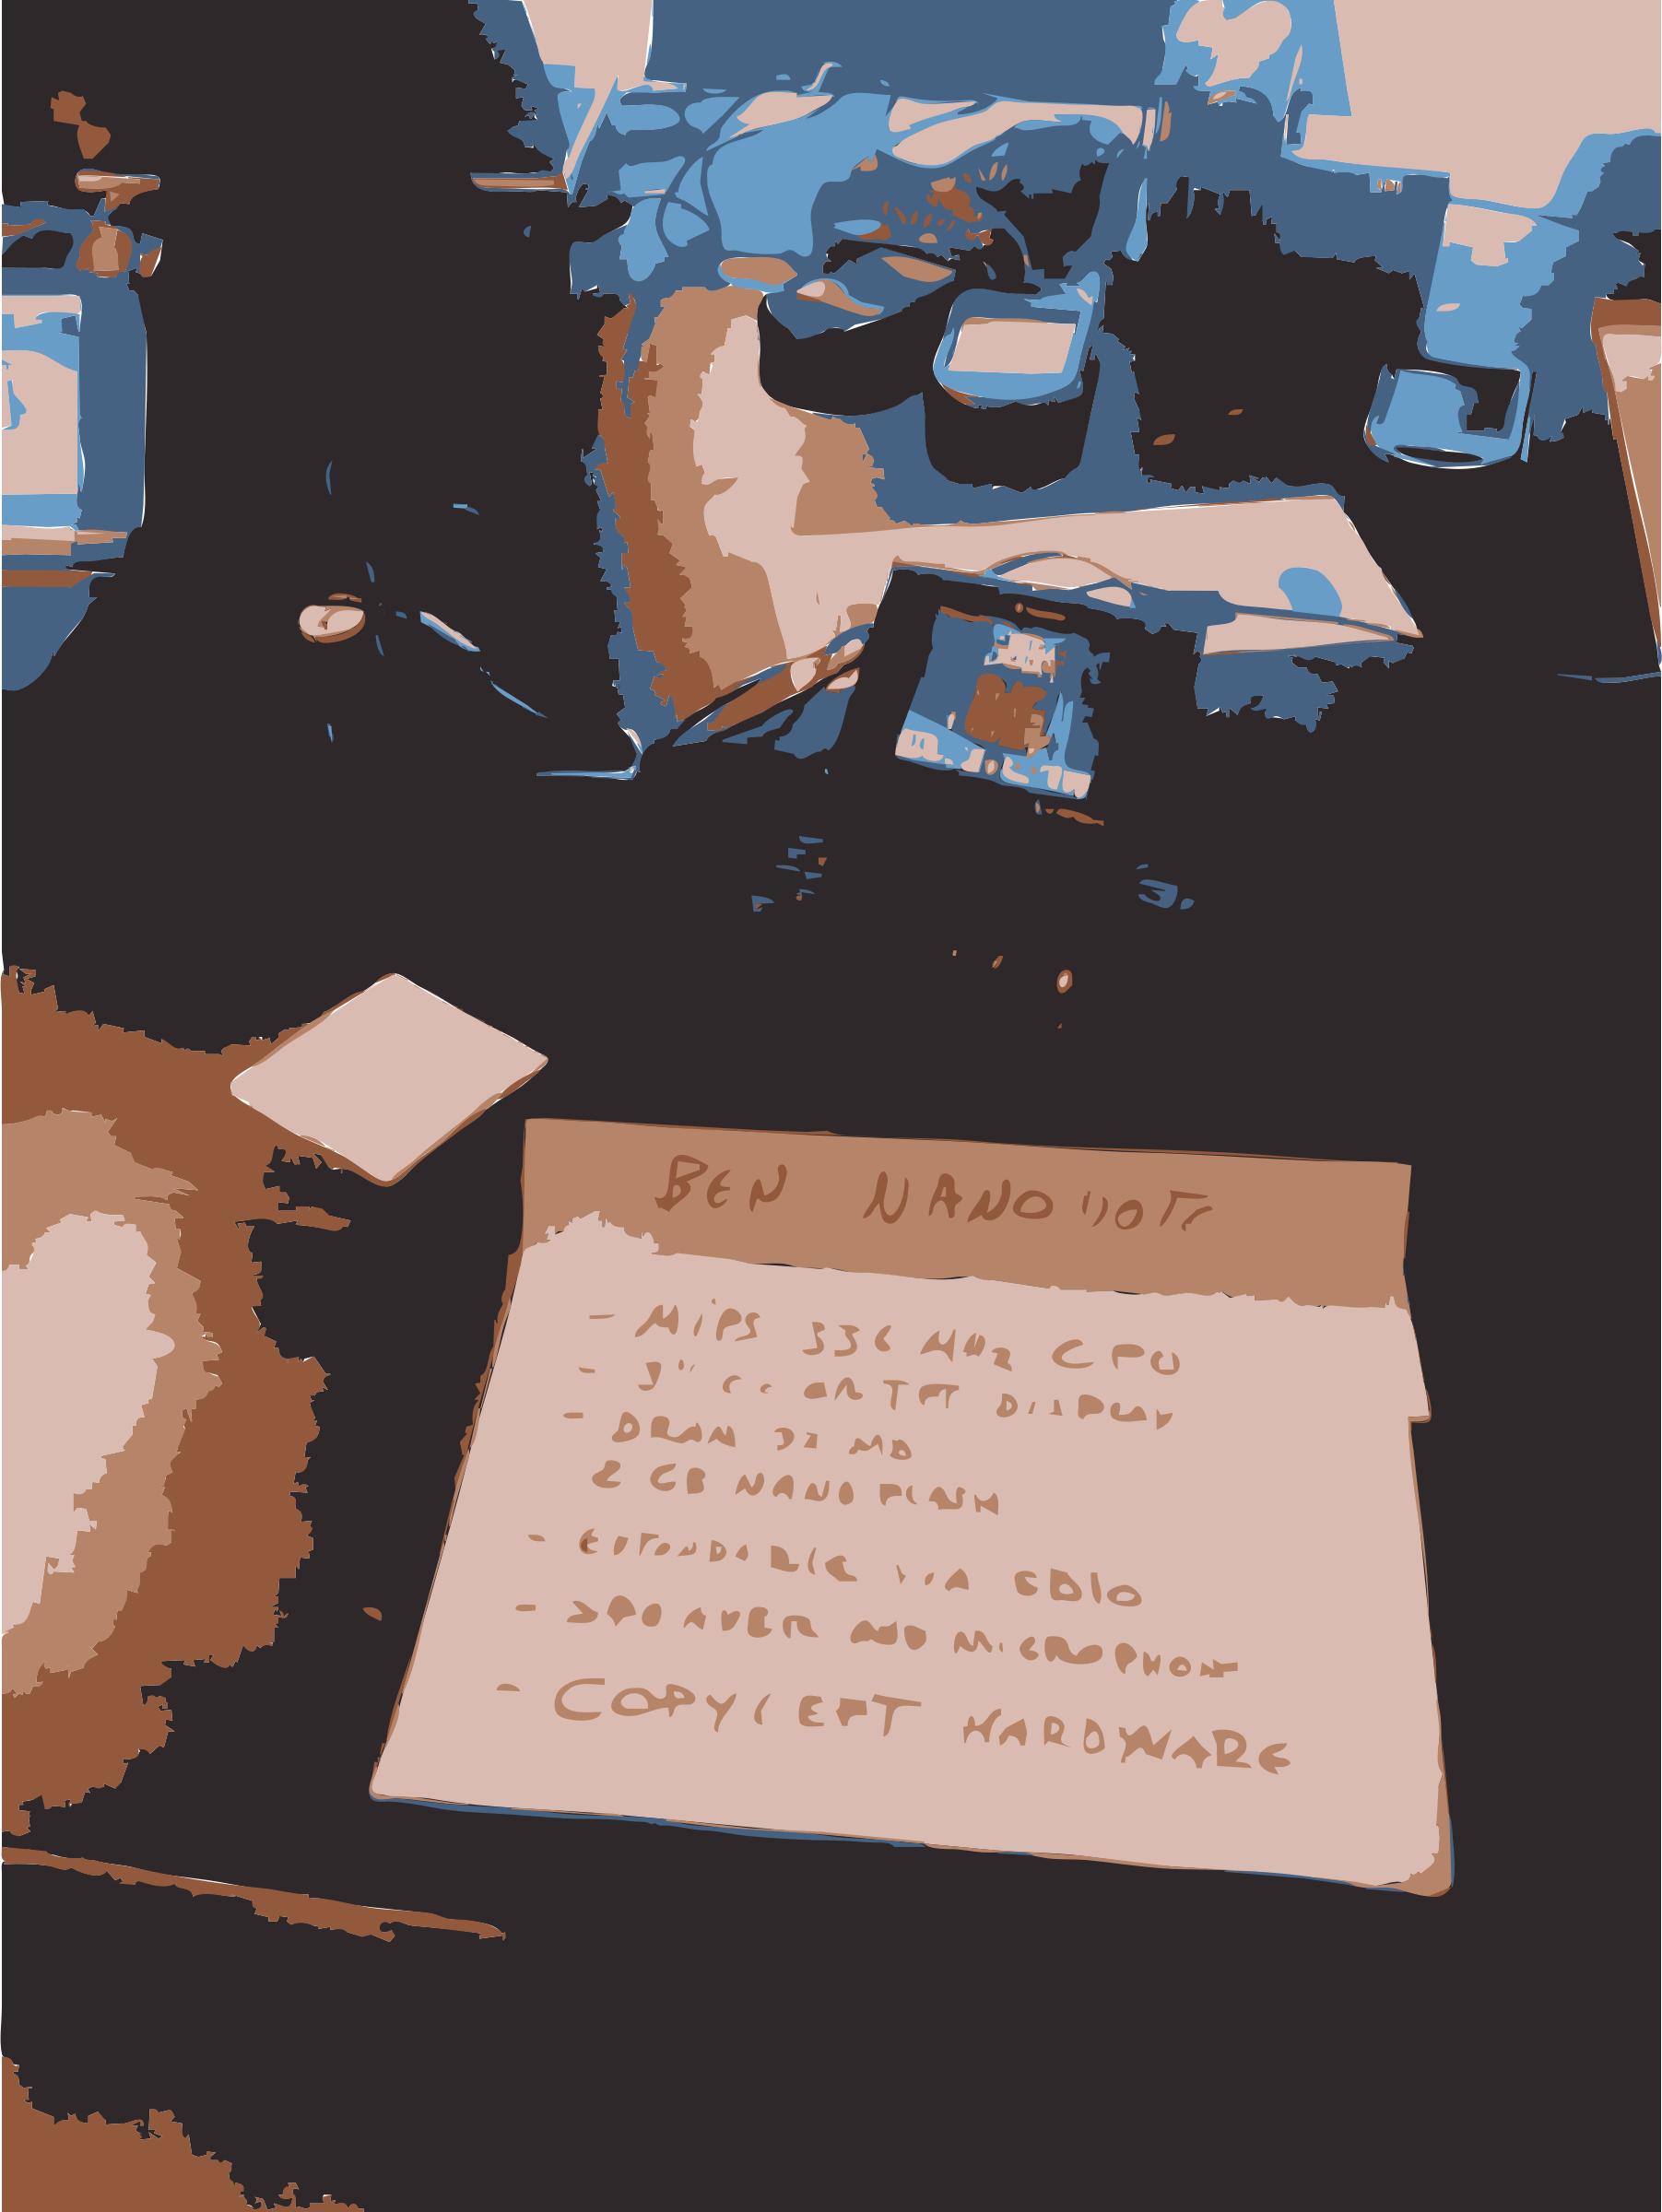 BEN NANONOTE
- MIPS 336 MHZ CPU
- 3" COLOR TFT DISPLAY
- DRAM 32 MB
2 GB NAND FLASH
- EXPANDABLE VIA SDIO
- SPEAKER AND MICROPHONE
- COPYLEFT HARDWARE